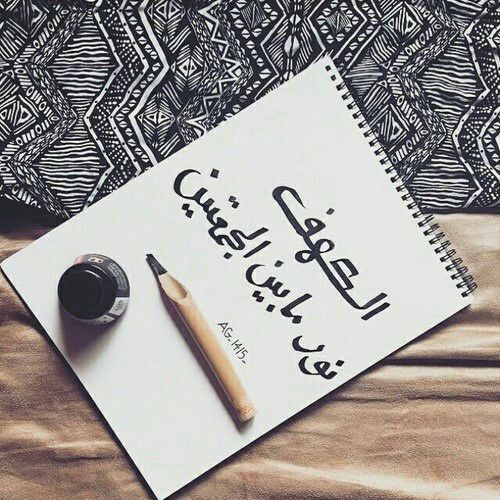 الكهف
نور ما بين الجمعتين
AG_1415_